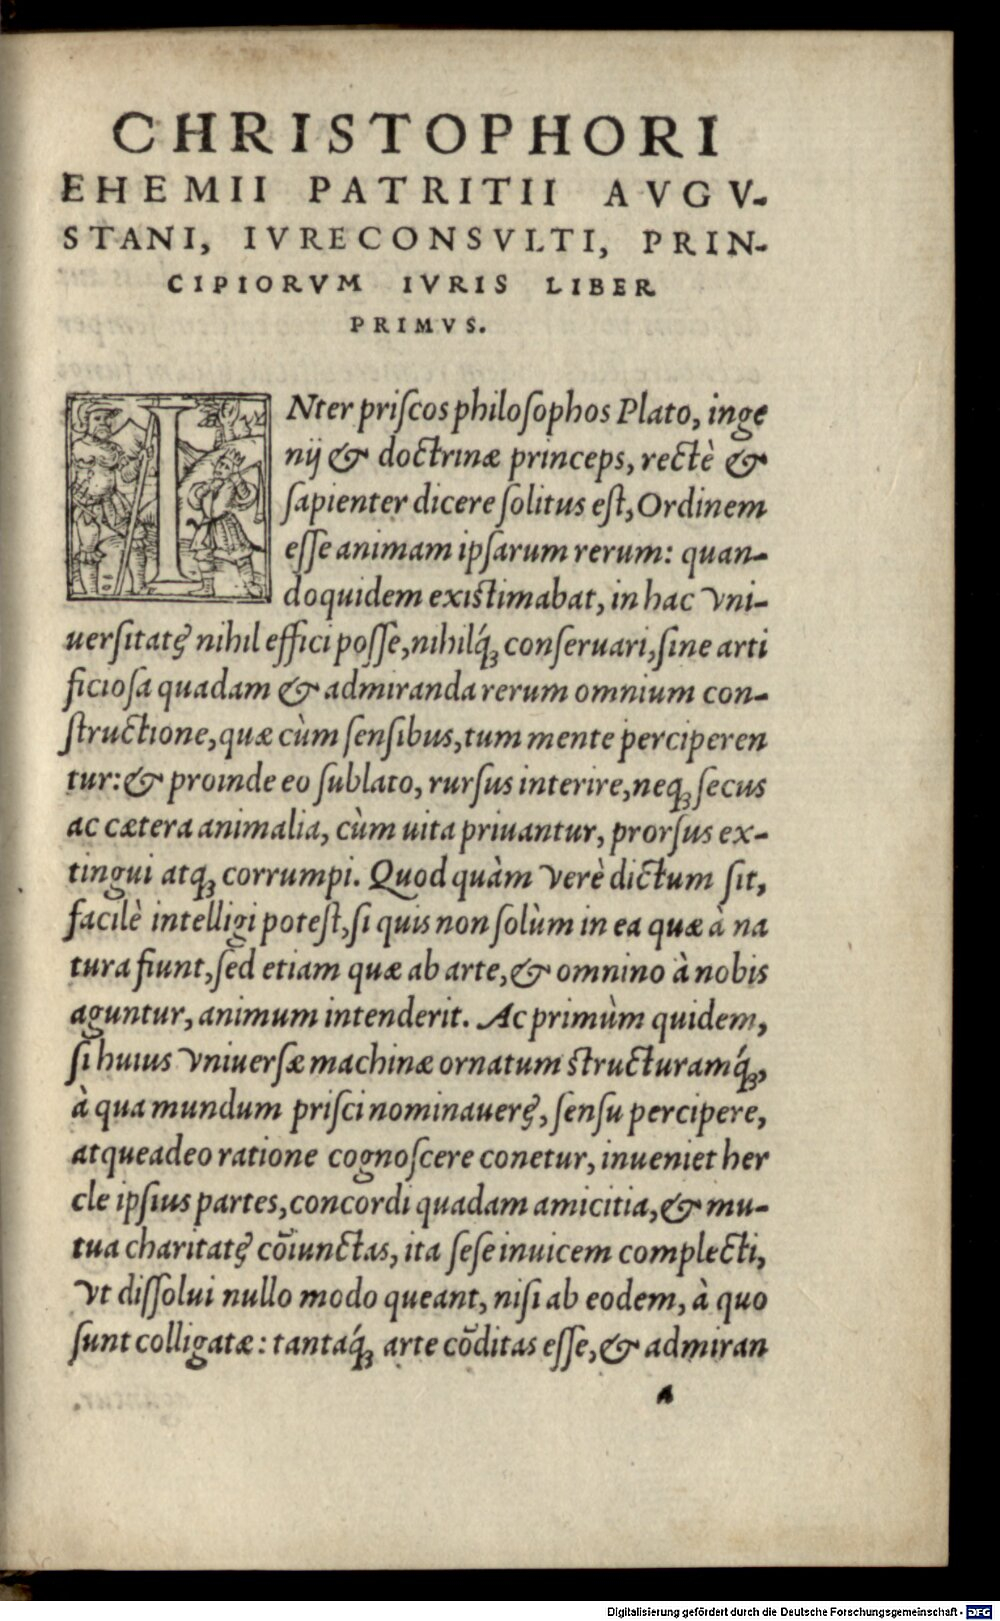 CHRISTOPHORI
EHEMII PATRITII AVGV-
STANI, IVRECONSVLTI, PRIN-
CIPIORVM IVRIS LIBER
PRIMVS.
INter priſcos philoſophos Plato, inge
nij & doctrinæ princeps, rectè &
ſapienter dicere ſolitus eſt, Ordinem
eſſe animam ipſarum rerum: quan-
doquidem existimabat, in hac vni-
uerſitatę nihil effici poſſe, nihilq́ꝫ conſeruari, ſine arti
ficioſa quadam & admiranda rerum omnium con-
ſtructione, quæ cùm ſenſibus, tum mente perciperen
tur: & proinde eo ſublato, rurſus interire, neqꝫ ſecus
ac cætera animalia, cùm uita priuantur, prorſus ex-
tingui atqꝫ corrumpi. Quod quàm verè dictum ſit,
facilè intelligi poteſt, ſi quis non ſolùm in ea quæ à na
tura fiunt, ſed etiam quæ ab arte, & omnino à nobis
aguntur, animum intenderit. Ac primùm quidem,
ſi huius vniuerſæ machinæ ornatum structuramq́ꝫ,
à qua mundum priſci nominauerę, ſenſu percipere,
atqueadeo ratione cognoſcere conetur, inueniet her
cle ipſius partes, concordi quadam amicitia, & mu-
tua charitatę cõiunctas, ita ſeſe inuicem complecti,
vt diſſolui nullo modo queant, niſi ab eodem, à quo
ſunt colligatæ: tantaq́ꝫ arte cõditas eſſe, & admiran
a
Digitalisierung gefördert durch die Deutsche Forschungsgemeinschaft - DFG